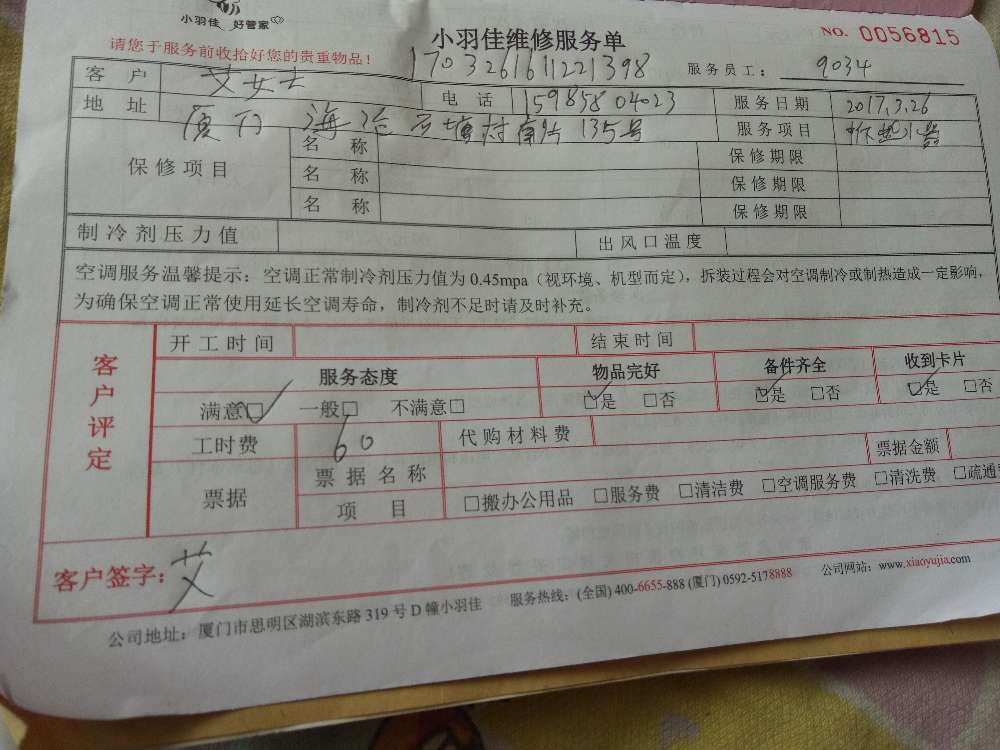 小羽佳 好管家
小羽佳维修服务单 NO. 0056815
请您于服务前收拾好您的贵重物品！ 1703261611221398 服务员工： 9034
客户 艾女士 电话 15985804023 服务日期 2017.3.26
地址 厦门 海沧 村 135号 服务项目 拆热水器
保修项目 名称 保修期限
名称 保修期限
名称 保修期限
制冷剂压力值 出风口温度
空调服务温馨提示：空调正常制冷剂压力值为0.45mpa（视环境、机型而定），拆装过程会对空调制冷或制热造成一定影响，
为确保空调正常使用延长空调寿命，制冷剂不足时请及时补充。
客户评定 开工时间 结束时间
服务态度 物品完好 备件齐全 收到卡片
满意□ 一般□ 不满意□ □是 □否 □是 □否 □是 □否
工时费 60 代购材料费
票据 票据名称 票据金额
项目 □搬办公用品 □服务费 □清洁费 □空调服务费 □清洗费 □疏通
客户签字：艾
公司地址：厦门市思明区湖滨东路319号D幢小羽佳 服务热线：(全国) 400-6655-888 (厦门) 0592-5178888 公司网站：www.xiaoyujia.com